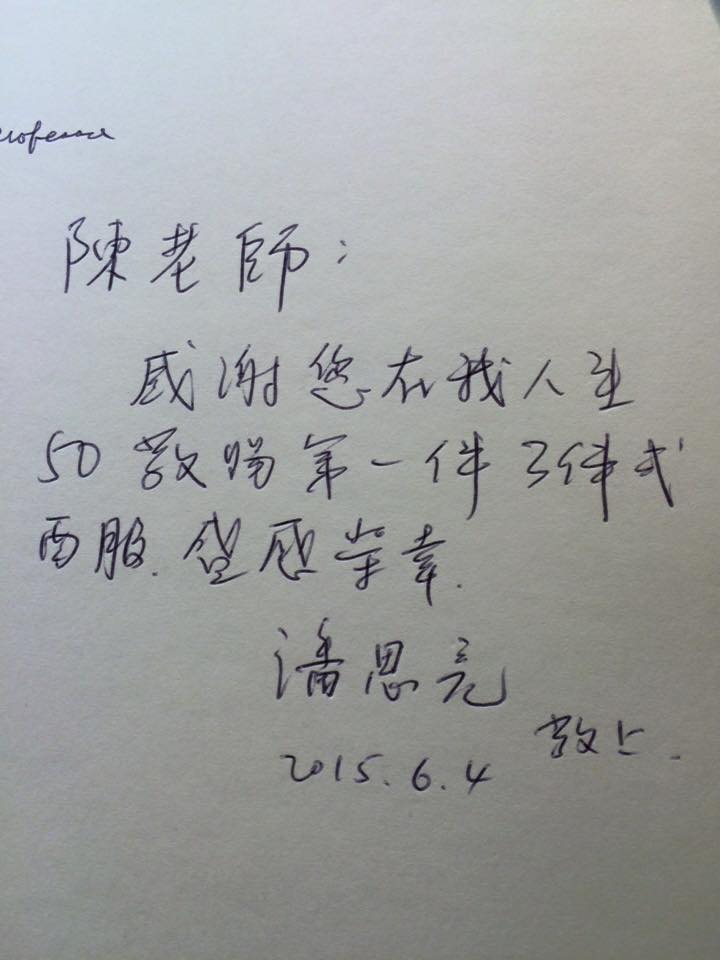 陳老師：
感謝您在我人生
50 歲賜第一件 3件式
西服. 倍感榮幸.
潘思亮
敬上.
2015.6.4